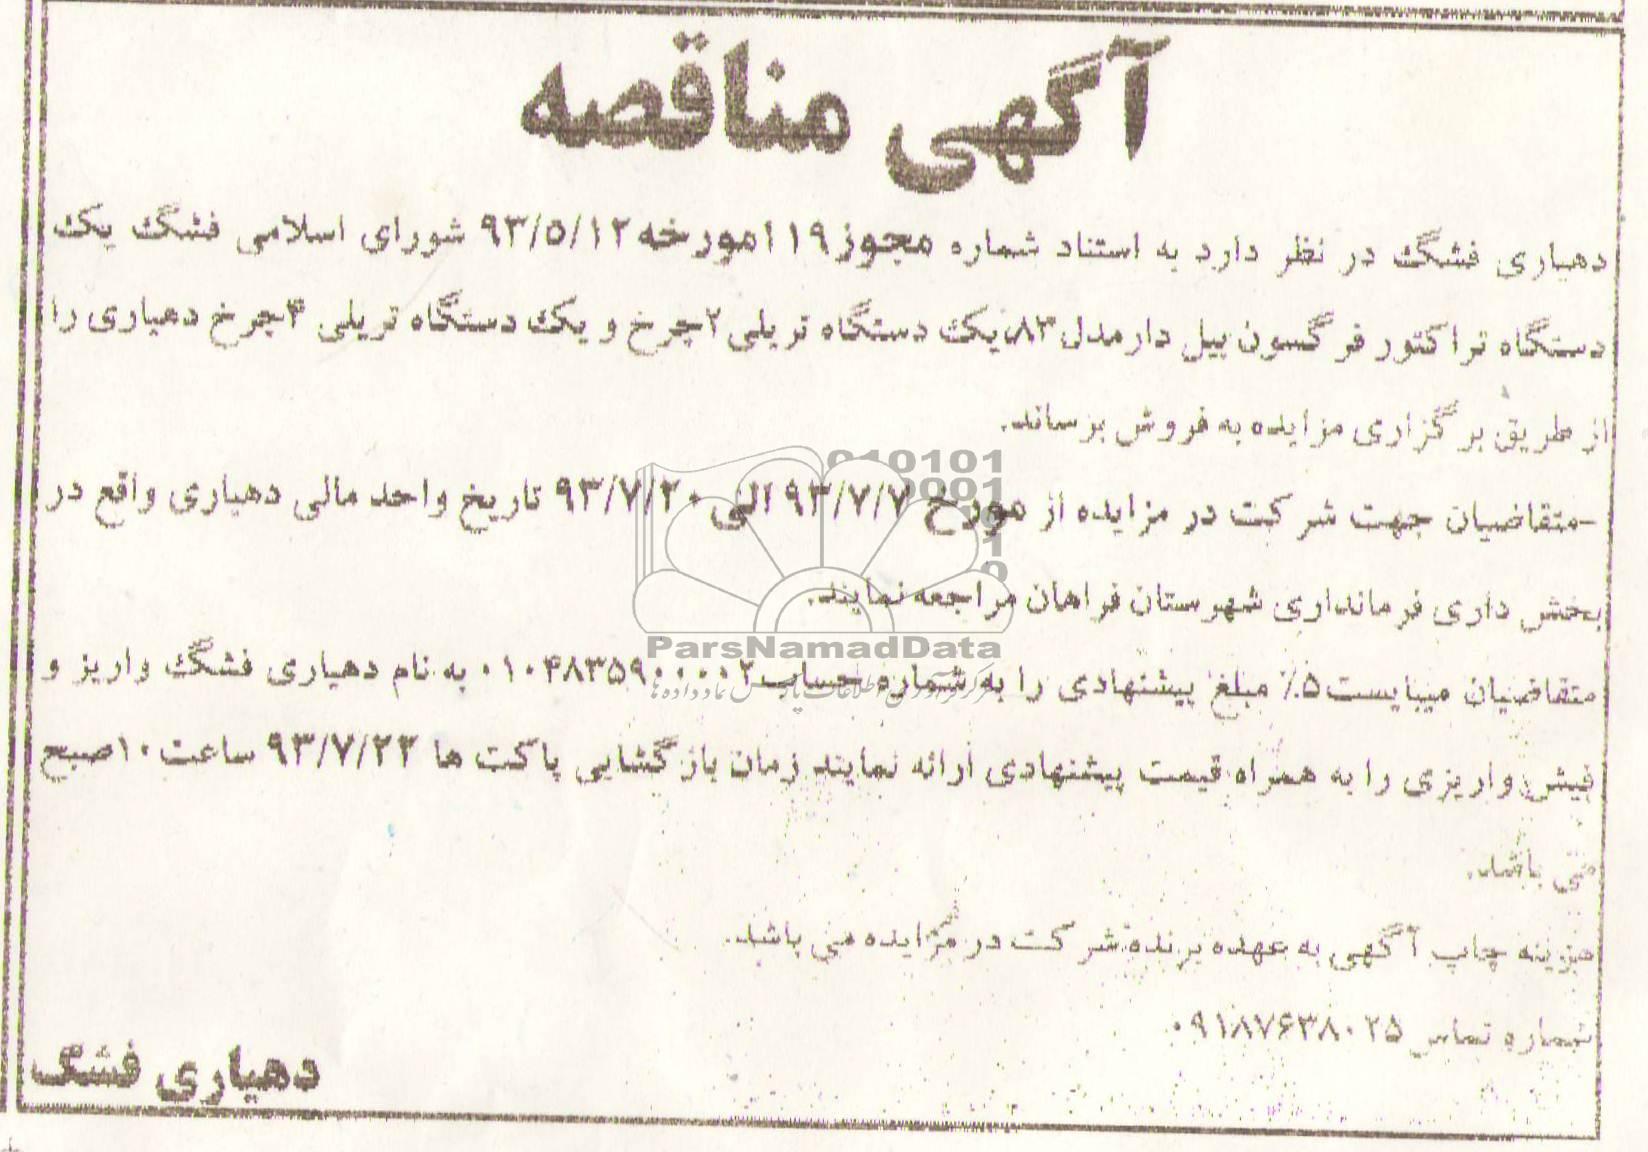 آگهی مناقصه
دهیاری فشگ در نظر دارد به استناد شماره مجوز۱۱۹مورخه۹۳/۵/۱۲ شورای اسلامی فشگ یک
دستگاه تراکتور فرگسون بیل دارمدل۸۳،یک دستگاه تریلی۲چرخ و یک دستگاه تریلی ۴چرخ دهیاری را
از طریق برگزاری مزایده به فروش برساند.
-متقاضیان جهت شرکت در مزایده از مورخ ۹۳/۷/۷الی۹۳/۷/۲۰ تاریخ واحد مالی دهیاری واقع در
بخش داری فرمانداری شهرستان فراهان مراجعه نمایند.
متقاضیان میبایست۵٪ مبلغ پیشنهادی را به شماره حساب۰۱۰۴۸۳۵۹۰۰۰۰۲ به نام دهیاری فشگ واریز و
فیش واریزی را به همراه قیمت پیشنهادی ارائه نمایند زمان بازگشایی پاکت ها ۹۳/۷/۲۳ ساعت۱۰صبح
می باشد.
هزینه چاپ آگهی به عهده برنده شرکت در مزایده می باشد.
شماره تماس ۰۹۱۸۷۶۳۸۰۲۵
دهیاری فشگ
010101
0001
ParsNamadData